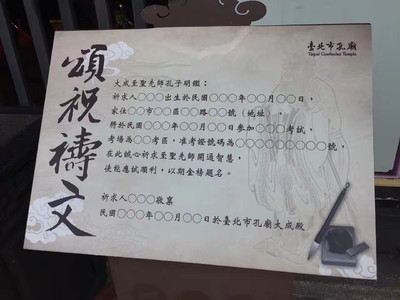 頌祝禱文
臺北市孔廟
Taipei Confucius Temple
大成至聖先師孔子明鑑：
祈求人○○○出生於民國○○○年○○月○○日，
家住○○市○○區○○路○○號（地址），
將於民國○○○年○○月○○日參加○○○考試，
考場為○○考區，准考證號碼為○○○○○○○○○○號，
在此誠心祈求至聖先師開通智慧，
使能應試順利，以期金榜題名。
祈求人○○○敬稟
民國○○○年○○月○○日於臺北市孔廟大成殿